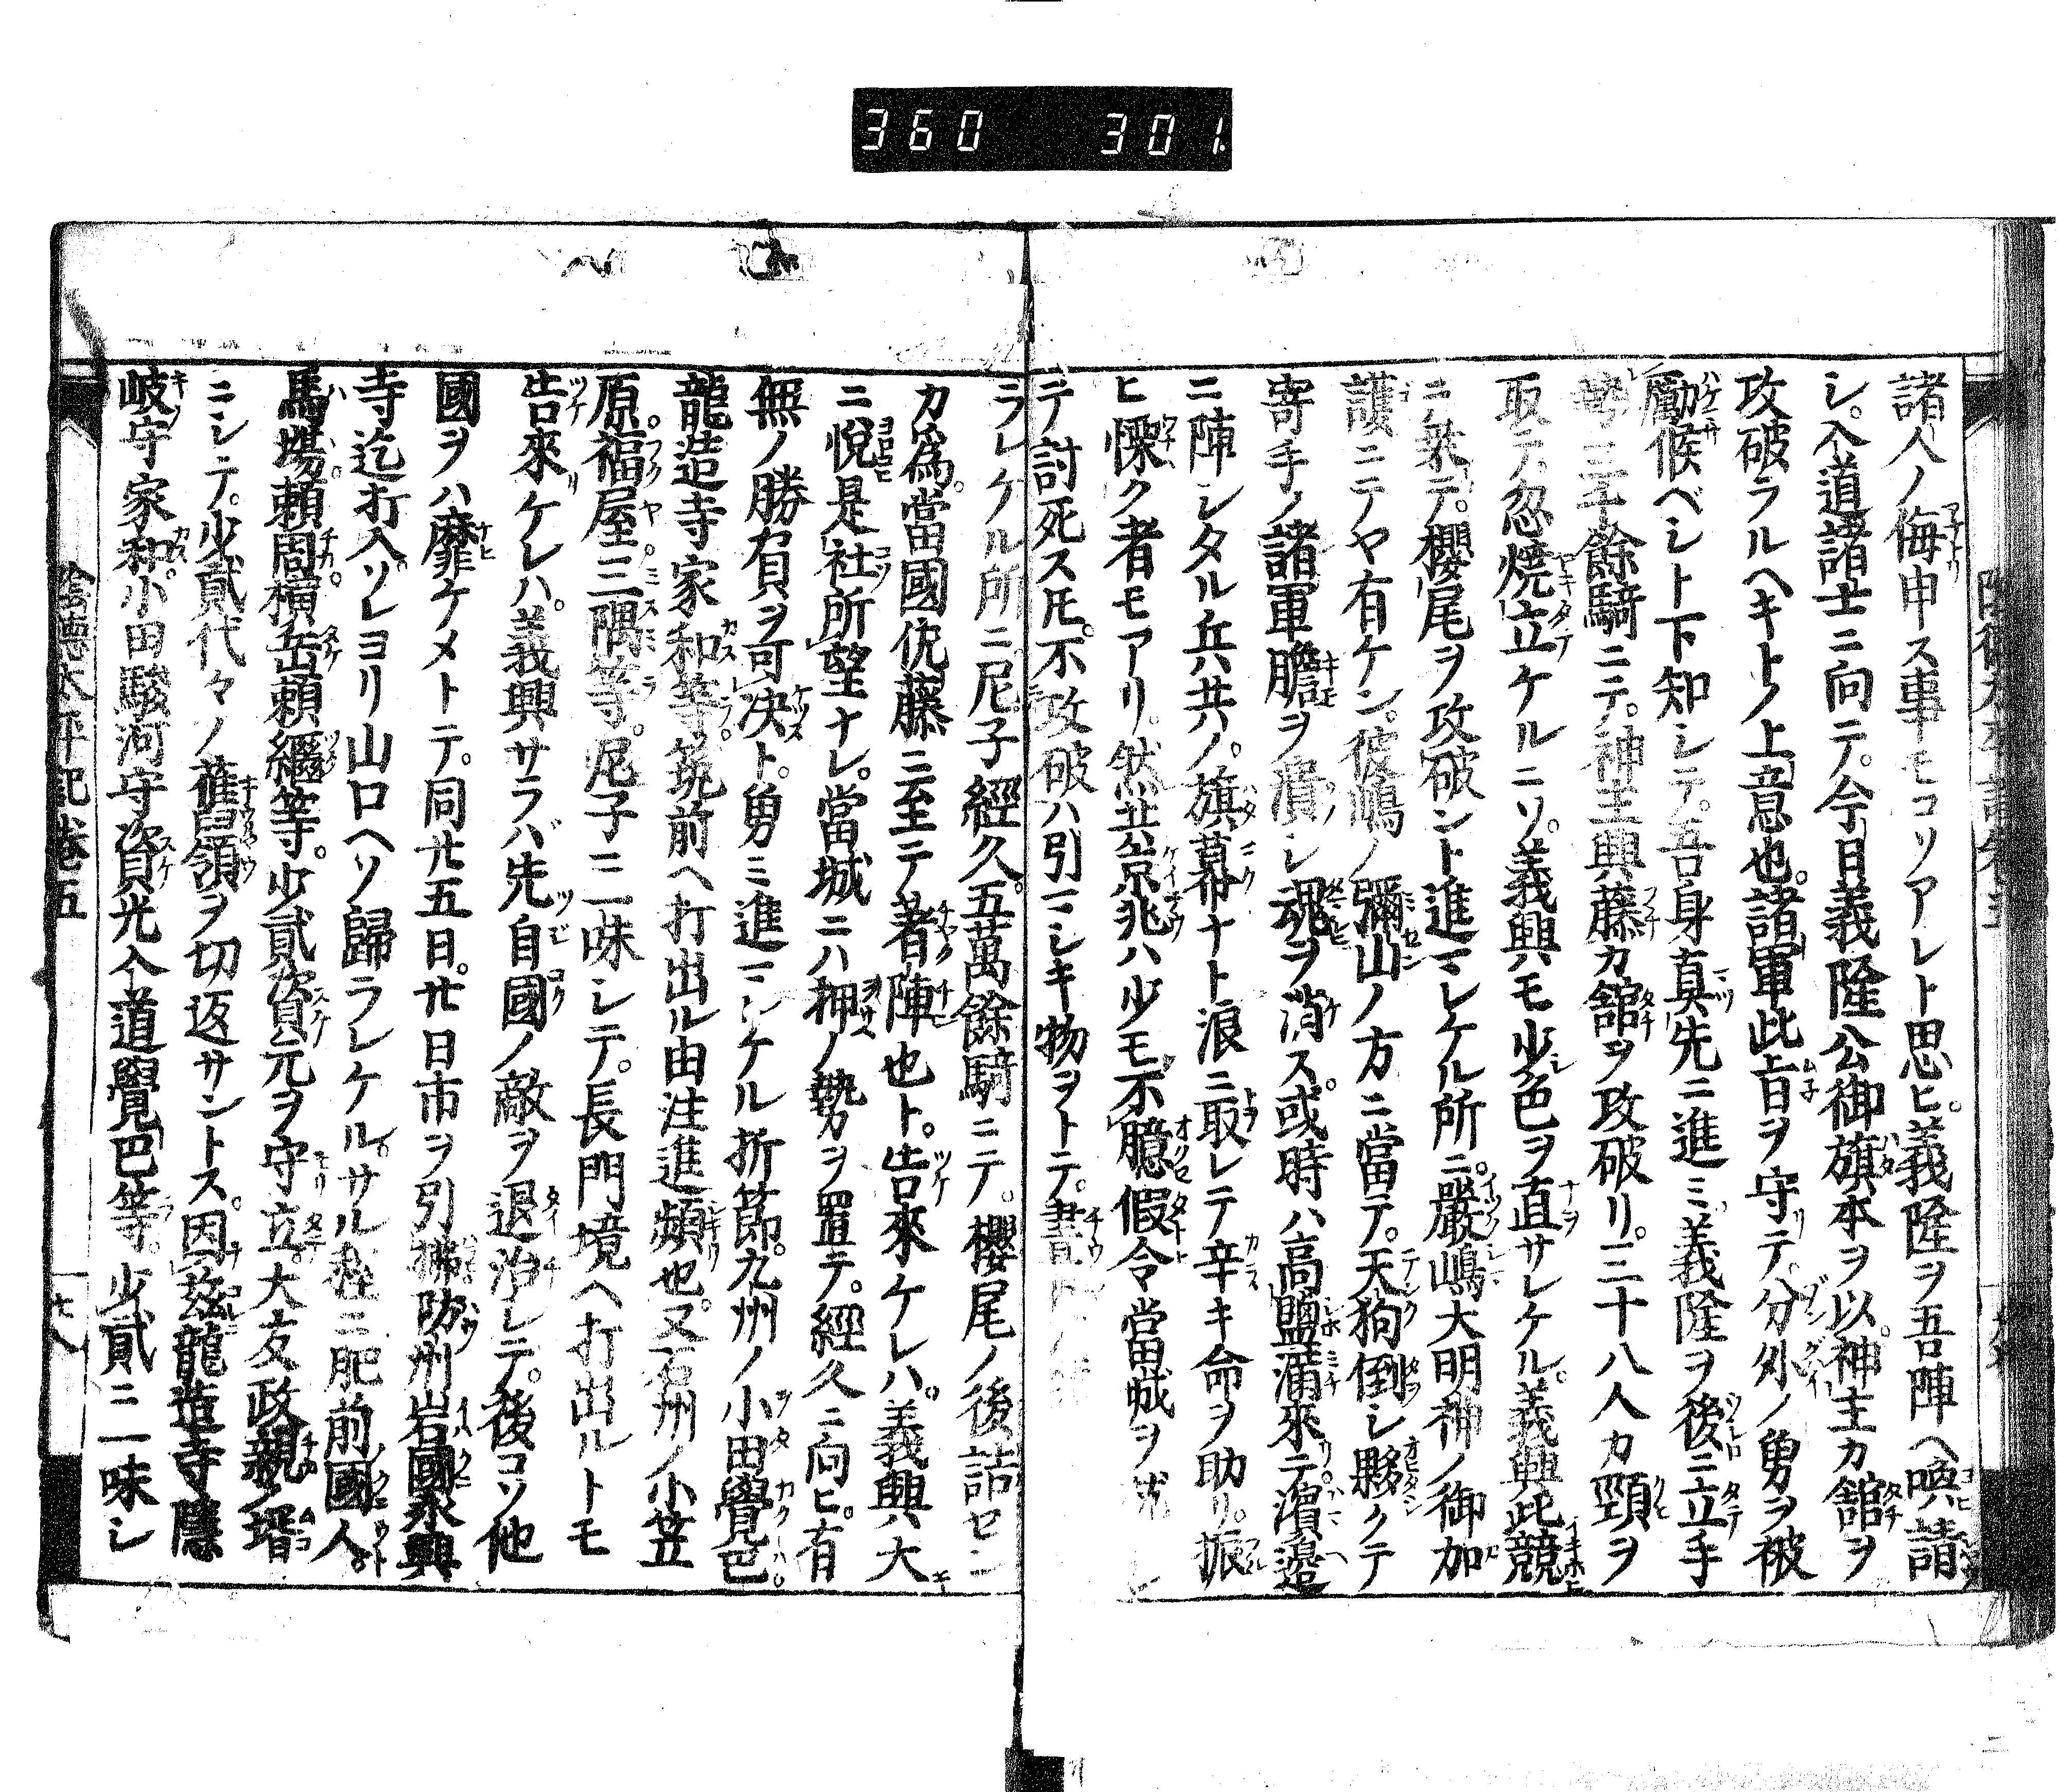 360 301
諸人ノ侮申ス事モコソアレト思ヒ。義隆ヲ吾陣ヘ喚請
シ。入道諸士ニ向テ。今日義隆公御旗本ヲ以。神主カ舘ヲ
攻破ラルヘキトノ上意也。諸軍此旨ヲ守テ。分外ノ勇ヲ被
勵候ベシト下知シテ。吾身真先ニ進ミ。義隆ヲ後ニ立手
勢三千餘騎ニテ。神主興藤カ舘ヲ攻破リ。三十八人カ頸ヲ
取テ。忽焼立ケルニソ。義興モ少色ヲ直サレケル。義興此競
ニ乘テ。櫻尾ヲ攻破ント進マレケル所ニ。嚴嶋大明神ノ御加
護ニテヤ有ケン。彼嶋ノ彌山ノ方ニ當テ。天狗倒シ夥クテ
寄手ノ諸軍膽ヲ潰シ魂ヲ消ス。或時ハ高鹽滿來テ。濱邉
ニ陣シタル兵共ノ。旗幕ナト浪ニ取レテ辛キ命ヲ助リ。振
ヒ慄ク者モアリ。然共京兆ハ少モ不臆。假令當城ヲ
テ討死ス圧。不攻破ハ引マシキ物ヲトテ。晝
ラレケル所ニ尼子經久。五萬餘騎ニテ。櫻尾ノ後詰セン
カ為。當國佐藤ニ至テ著陣也ト。告來ケレハ。義興大
ニ悅。是社所望ナレ。當城ニハ押ノ勢ヲ置テ。經久ニ向ヒ。有
無ノ勝負ヲ可決ト。勇ミ進マシケル折節。九州ノ小田覺巴。
龍造寺家和等。筑前ヘ打出ル由注進頻也。又石州ノ小笠
原。福屋。三隅等。尼子ニ一味シテ。長門境ヘ打出ルトモ
告來ケレハ。義興サラバ先自國ノ敵ヲ退治シテ。後コソ他
國ヲハ靡ケメトテ。同廿五日。廿日市ヲ引拂防州岩國永興
寺迄打入。ソレヨリ山口ヘソ歸ラレケル。サル程ニ肥前國人。
馬場頼周。横岳頼繼等。少貳資元ヲ守立。大友政親ノ壻
ニシテ。少貳代々ノ舊領ヲ切返サントス。因茲龍造寺隱
岐守家和。小田駿河守資光入道覺巴等。少貳ニ一味シ